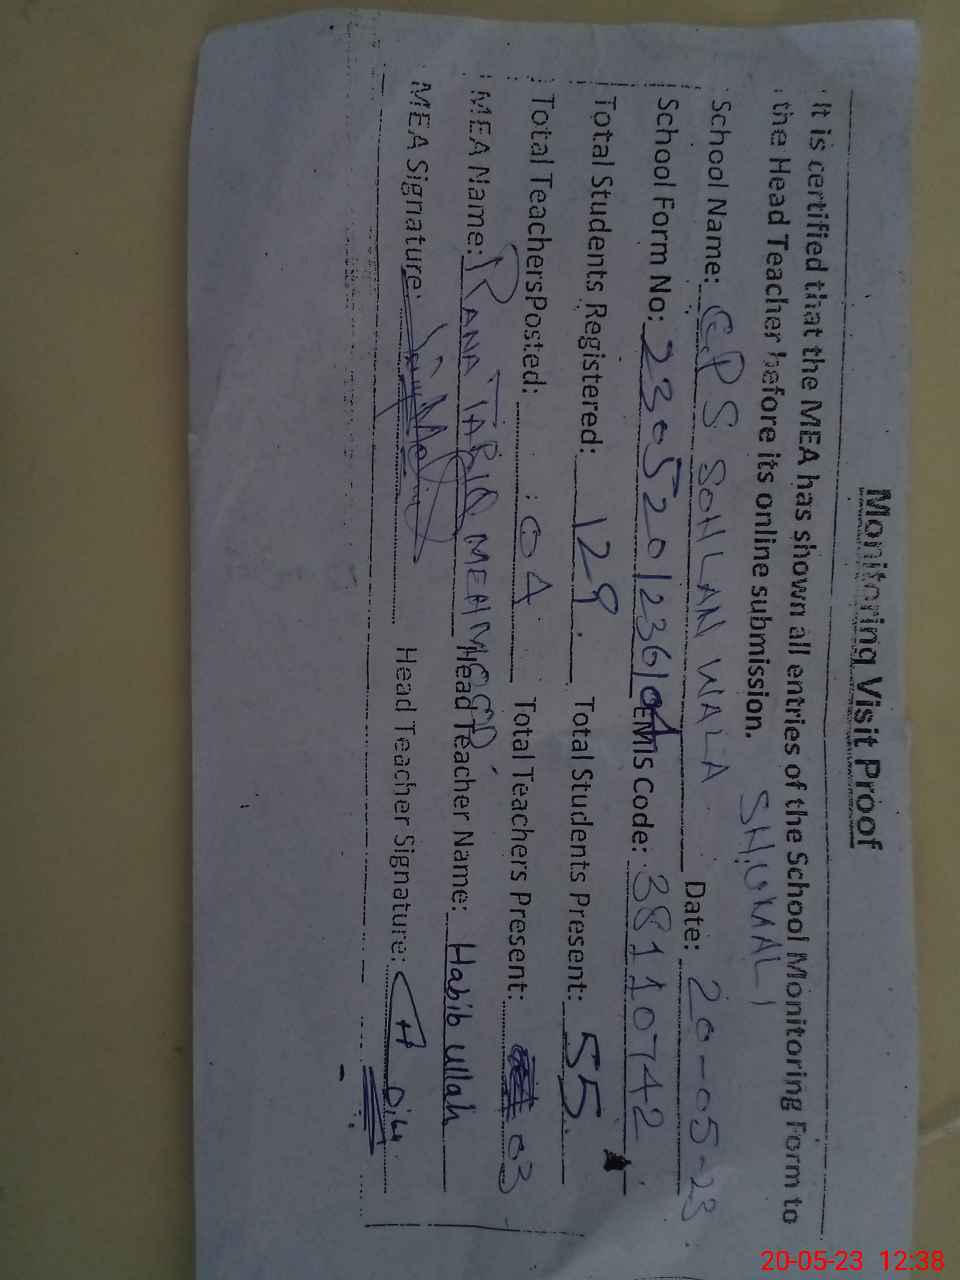 Monitoring Visit Proof
It is certified that the MEA has shown all entries of the School Monitoring Form to
the Head Teacher before its online submission.
SHUMALI
School Name: GPS SOHLAN WALA Date: 20-05-23
School Form No: 2305201236104 EMIS Code: 38110742
Total Students Registered: 129. Total Students Present: 55.
Total TeachersPosted: 04 Total Teachers Present: 03
MEA Name: RANA TARIQ MEHMOOD. Head Teacher Name: Habib ullah
MEA Signature: Head Teacher Signature:
20-05-23 12:38